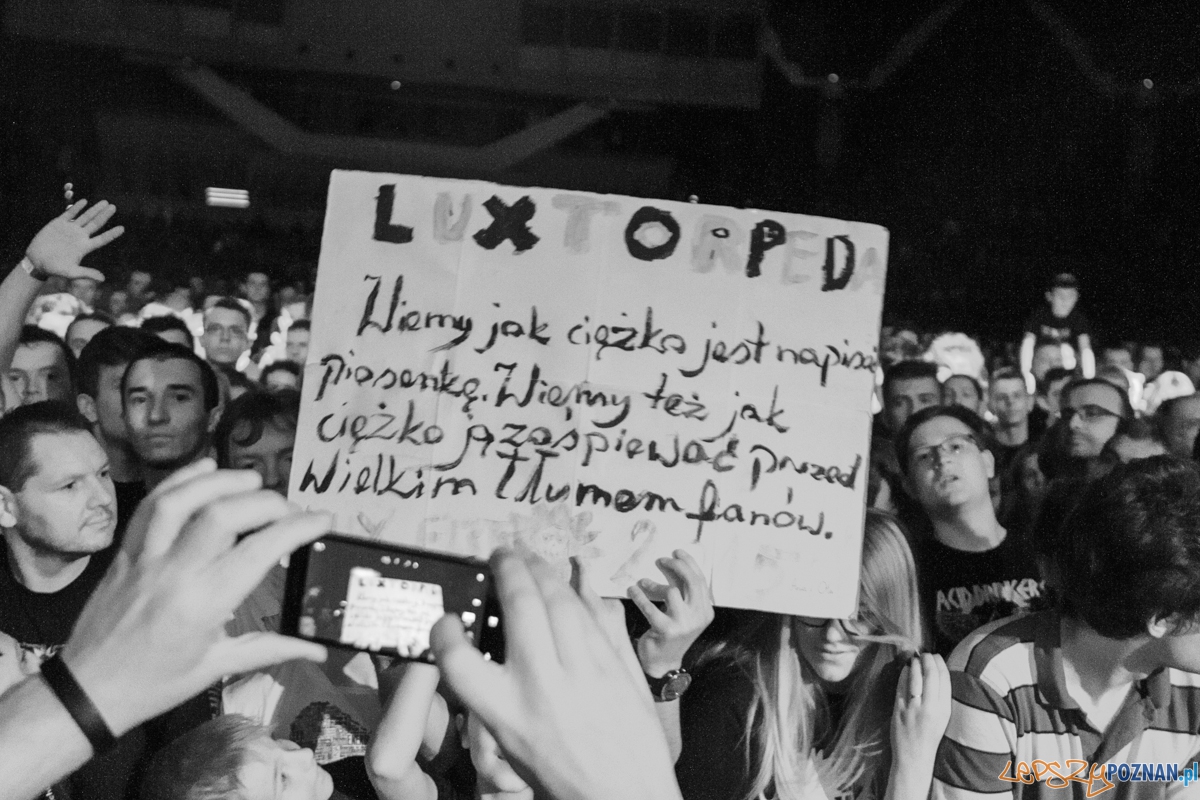 LUXTORPEDA
Wiemy jak ciężko jest napisać
piosenkę. Wiemy też jak
ciężko ją zaśpiewać przed
Wielkim tłumem fanów.
LUXTORPEDA
ACID DRINKERS
LEPSZYPOZNAN.pl